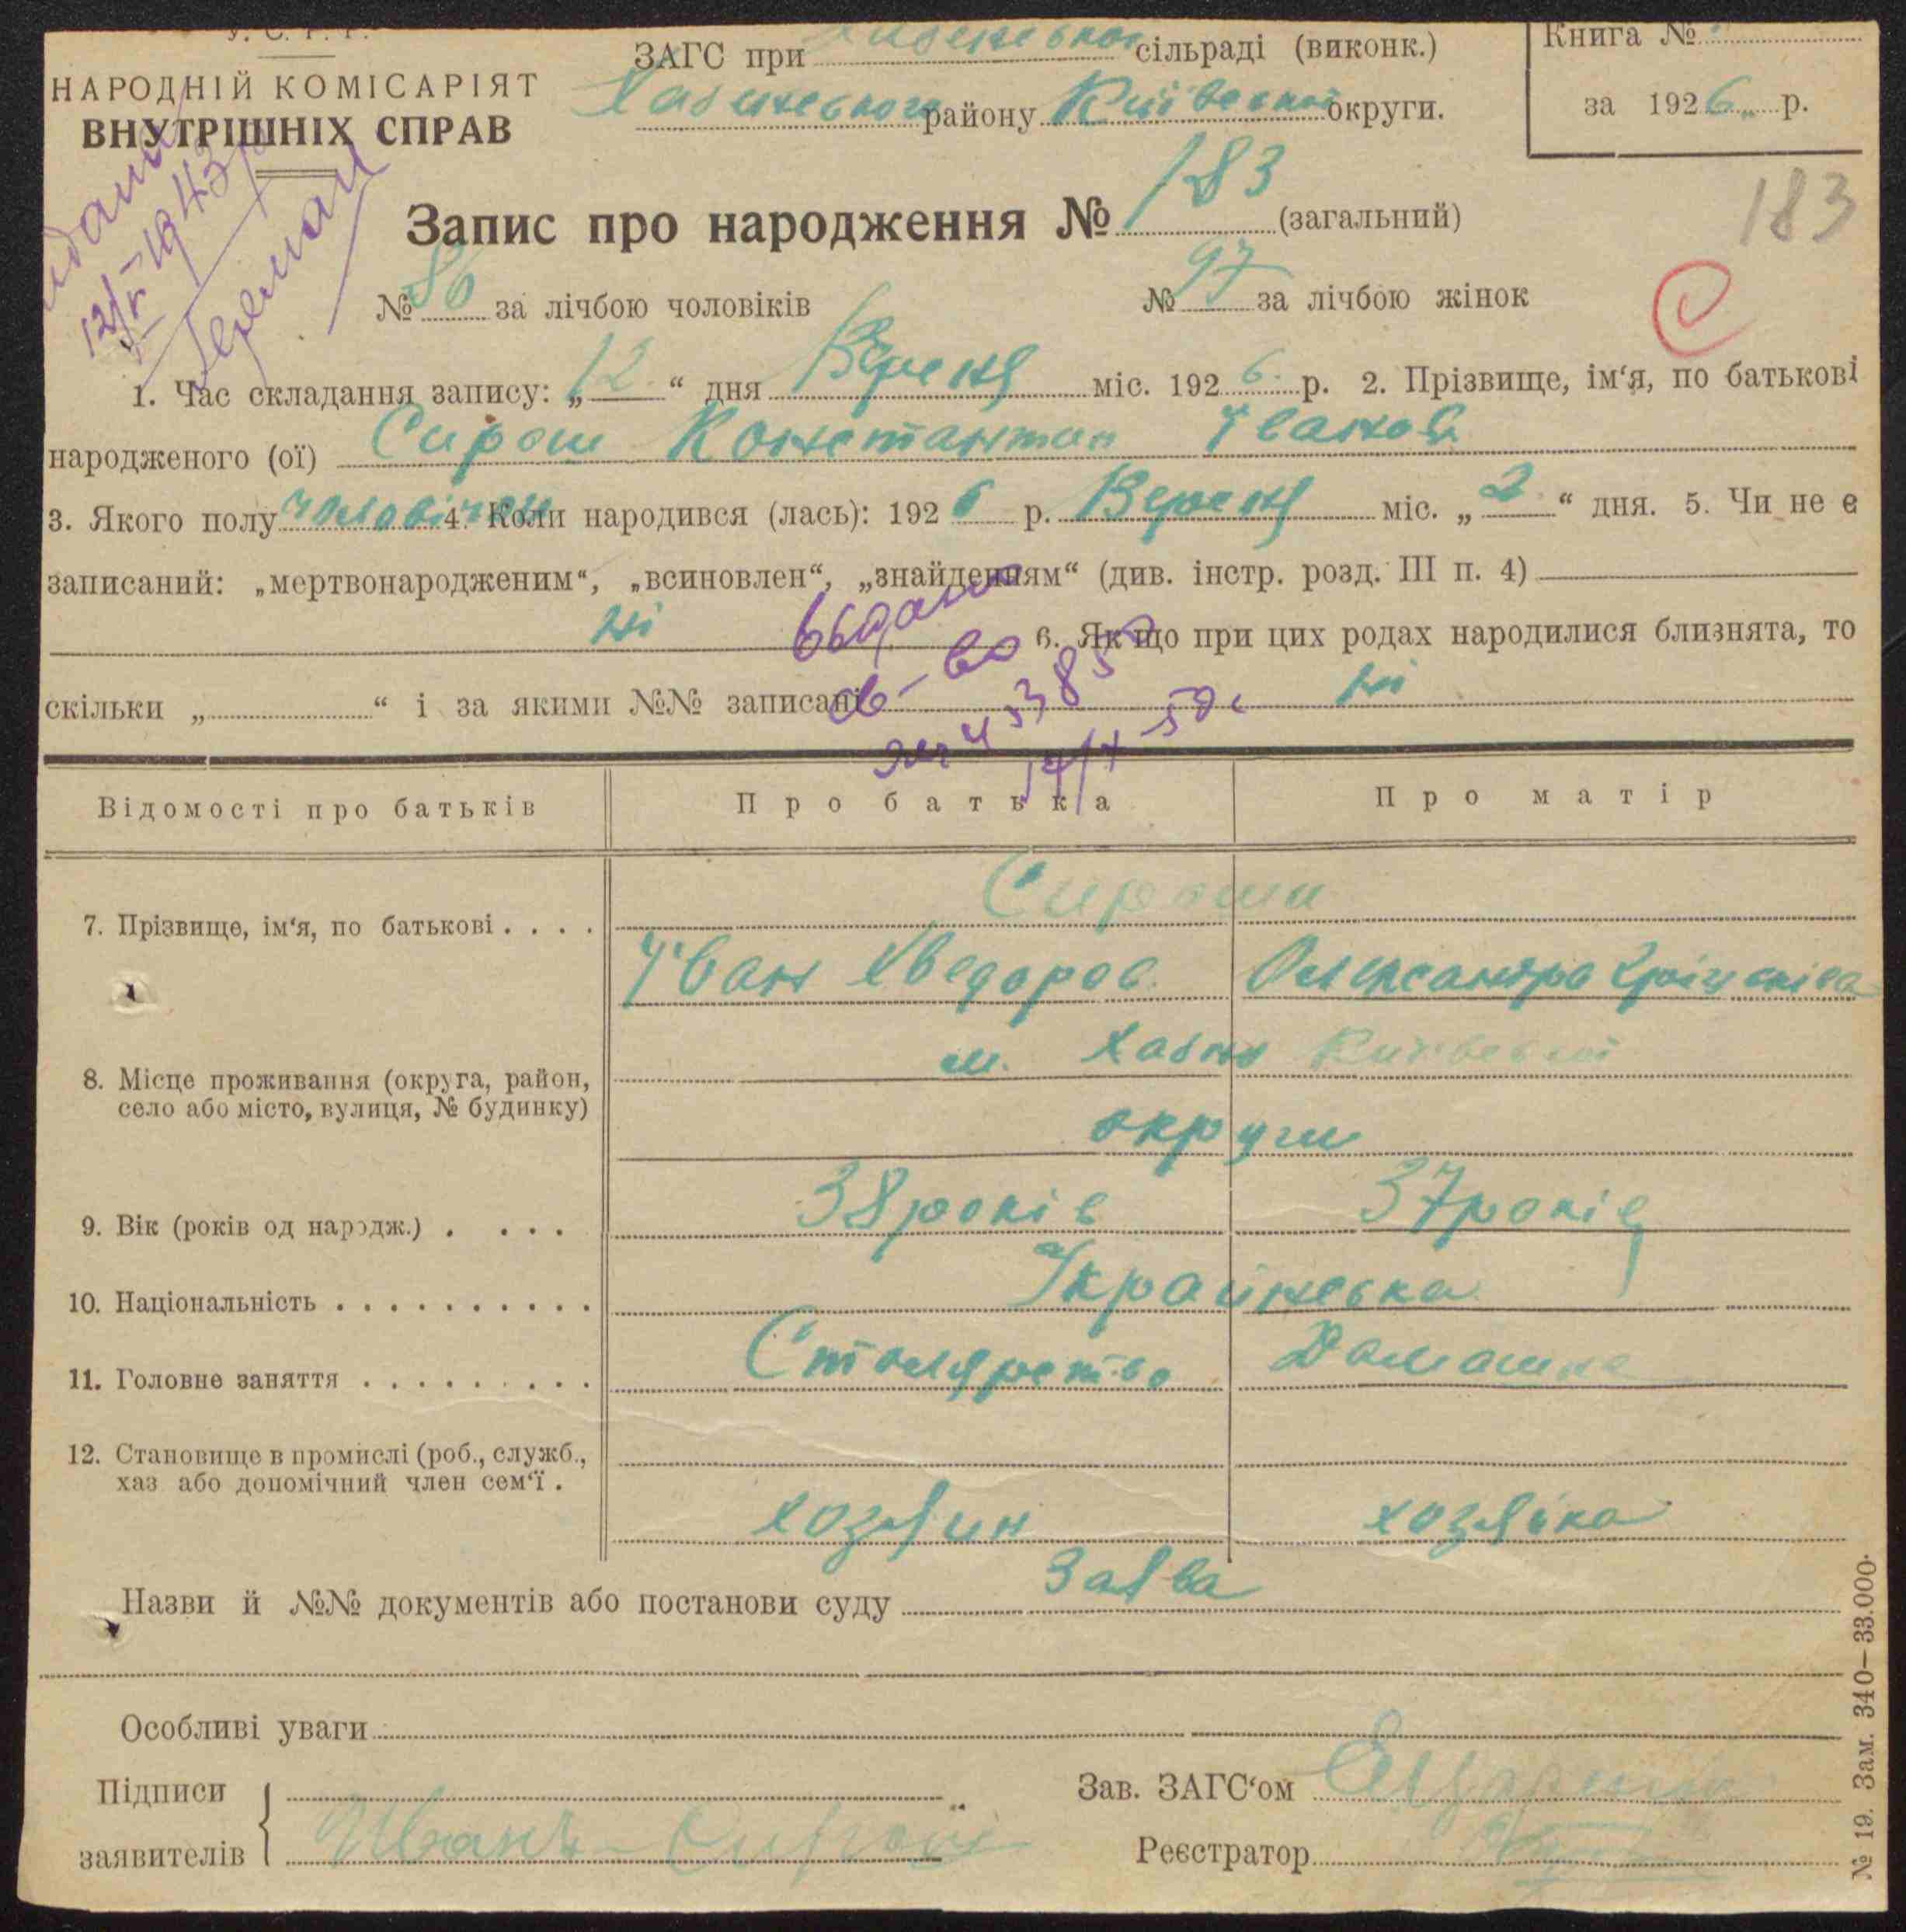 У. С. Р. Р.
НАРОДНІЙ КОМІСАРІЯТ
ВНУТРІШНІХ СПРАВ
ЗАГС при Хабенської сільраді (виконк.)
Хабенського району Київської округи.
Книга №
за 1926 р.
Запис про народження № 183 (загальний)
183
№ 86 за лічбою чоловіків № 97 за лічбою жінок
1. Час складання запису: „12“ дня Вересня міс. 1926. р. 2. Прізвище, ім‘я, по батькові
народженого (ої) Сирош Константин Іванов
3. Якого полу чоловічої 4. Коли народився (лась): 1926 р. Вересня міс. „2“ дня. 5. Чи не є
записаний: „мертвонародженим“, „всиновлен“, „знайденням“ (див. інстр. розд. III п. 4)
ні 6. Якщо при цих родах народилися близнята, то
скільки „ “ і за якими №№ записані ні
Відомості про батьків Про батька Про матір
7. Прізвище, ім‘я, по батькові . . . . Сироши
Іван Хведоров. Олександра
8. Місце проживання (округа, район,
село або місто, вулиця, № будинку)
м. Хабне Київської
округи
9. Вік (років од народж.) . . . . 38 років 37 років
10. Національність . . . . . . . . . . Українська
11. Головне заняття . . . . . . . . . Столярство Домашнє
12. Становище в промислі (роб., служб.,
хаз або допомічний член сем‘ї .
хозяин хозяйка
Назви й №№ документів або постанови суду Заява
Особливі уваги
Підписи
заявителів
Иванъ Сирош
Зав. ЗАГС‘ом
Реєстратор
№ 19. Зам. 340—33.000.